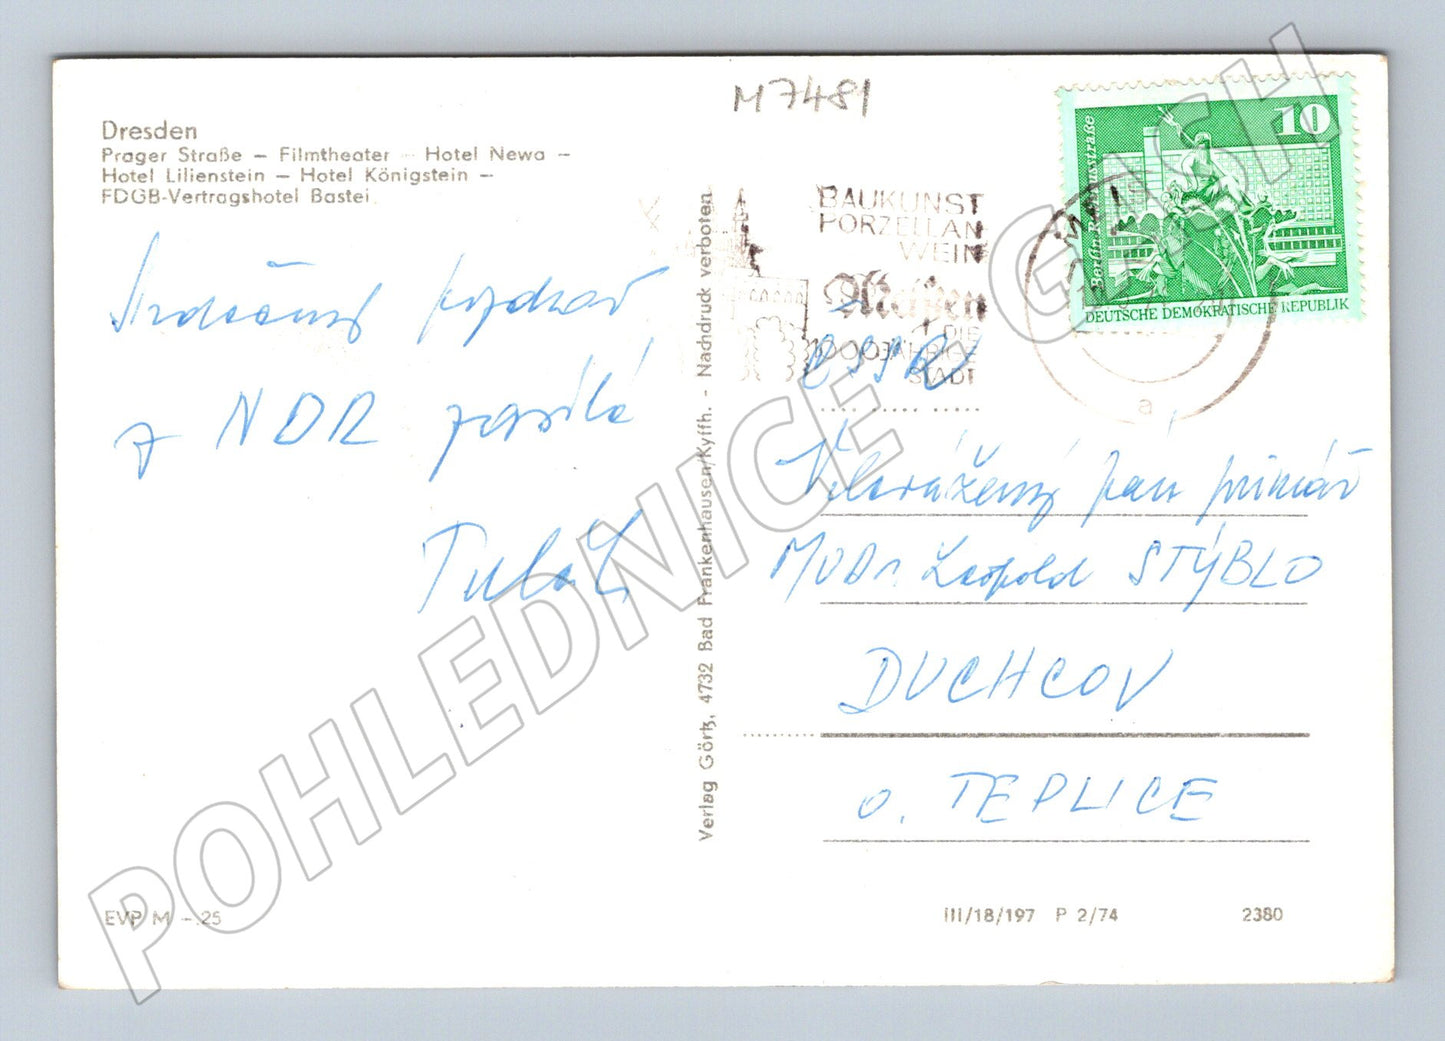 M7481
Dresden
Prager Straße – Filmtheater – Hotel Newa –
Hotel Lilienstein – Hotel Königstein –
FDGB-Vertragshotel Bastei
Srdečný pozdrav
z NDR posílá
EVP M –.25
Verlag Görtz, 4732 Bad Frankenhausen/Kyffh. - Nachdruck verboten
BAUKUNST
PORZELLAN
WEIN
Meißen
DIE
1000JÄHRIGE
STADT
10
DEUTSCHE DEMOKRATISCHE REPUBLIK
a
Vdp. Vážený pan primář
MUDr Leopold STÝBLO
DUCHCOV
o. TEPLICE
III/18/197 P 2/74 2380
POHLEDNICE GASH